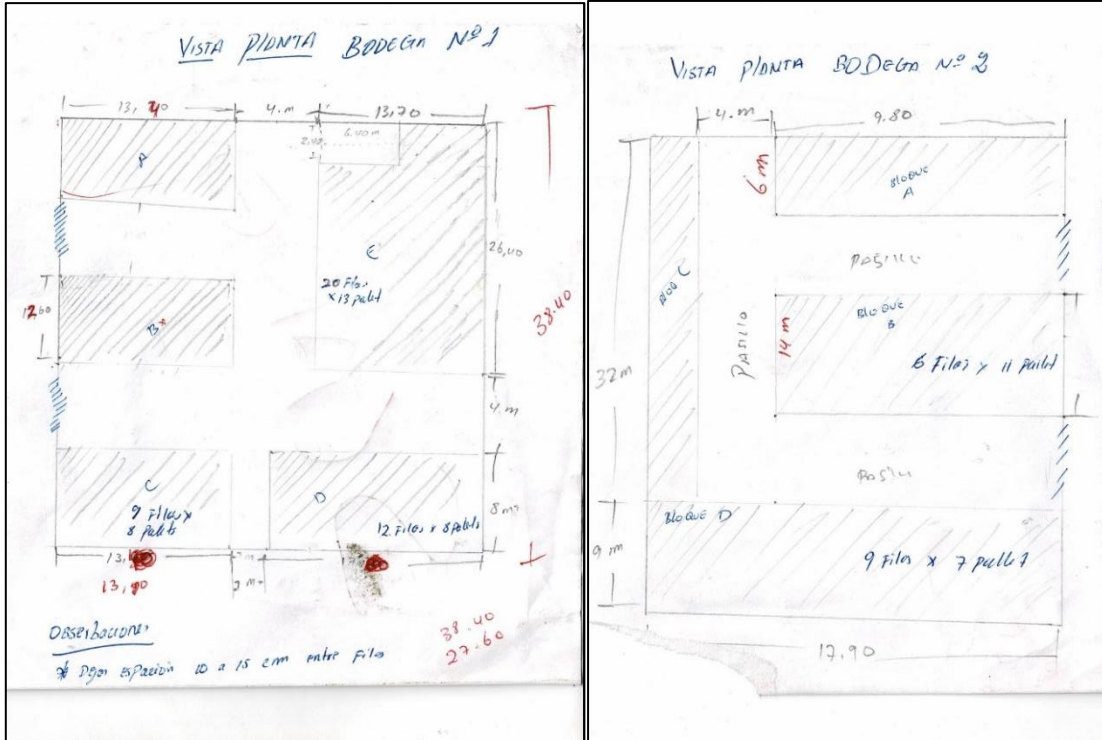 VISTA PLANTA BODEGA Nº 1
13,40
4.m
13,70
6.40m
2,40
A
E
20 Filas
x 13 palet
26,40
38.40
12,60
B*
4.m
C
9 Filas x
8 palets
D
12 Filas x 8 palets
8 m
13,40
2 m
38.40
27.60
* Dejar espacion 10 a 15 cm entre Filas
VISTA PLANTA BODEGA Nº 2
4.m
9.80
6 m
BLOQUE
A
PASILLO
BLOQUE
B
14 m
6 Filas x 11 pallet
32m
PASILLO
BLOQUE D
9 m
9 Filas x 7 pallet
17.90